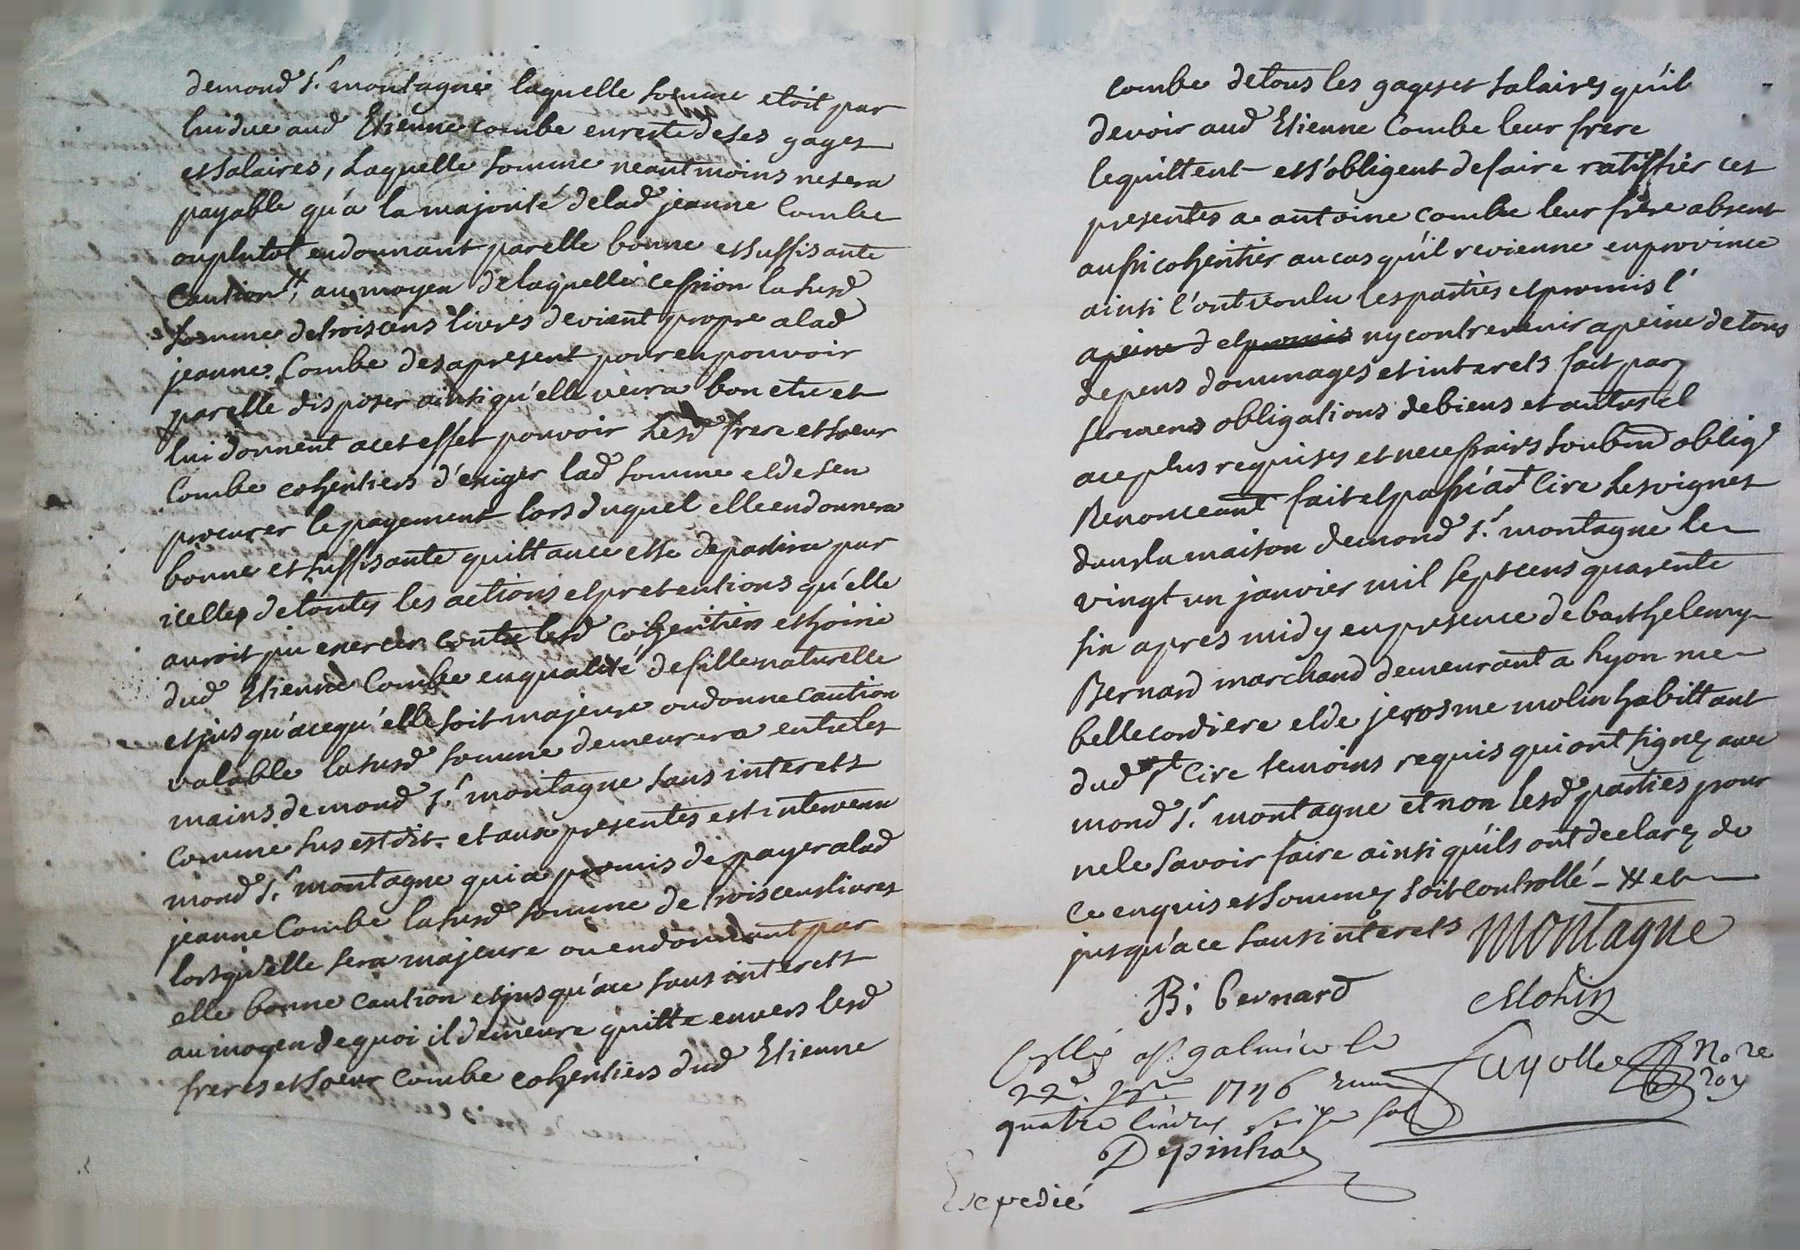 demond. Sr. montagne laquelle somme etoit par
lui due aud Etienne combe en reste de ses gages
et salaires, Laquelle somme neantmoins ne sera
payable qu'a la majorité de lad jeanne Combe
ou plutot en donnant par elle bonne et suffisante
Caution #, au moyen de laquelle cession la susd
somme de trois cens livres devient propre a lad
jeanne Combe des apresent pour en pouvoir
par elle disposer ainsi qu'elle veira bon etre et
lui donnent a cet effet pouvoir Lesd frere et soeur
Combe cohéritiers d'exiger lad somme et de s'en
procurer le payement lors duquel elle en donnera
bonne et suffisante quittance et se departira par
icelle, de toutes les actions et pretentions qu'elle
auroit pu exercer contre lesd cohéritiers et hoirie
dud Etienne Combe en qualité de fille naturelle
et jusqu'a ce qu'elle soit majeure ou donne caution
valable la susd somme demeurera entre les
mains de mond Sr. montagne sans interets
comme sus est dit. et aux presentes est intervenu
mond Sr. montagne qui a promis de payer a lad
jeanne Combe la susd somme de trois cens livres
lorsqu'elle sera majeure ou en donnant par
elle bonne caution et jusqu'a ce sans interets
au moyen de quoi il demeure quitte envers lesd
freres et soeur Combe cohéritiers dud Etienne
Combe de tous les gages et salaires qu'il
devoir aud Etienne Combe leur frere
le quittent et s'obligent de faire ratiffier ces
presentes a antoine combe leur frere absent
aussi cohéritier au cas qu'il revienne en province
ainsi l'ont voulu les parties et promis l'
a peine d et promis ny contrevenir a peine de tous
depens dommages et interets fait par
sermens obligations de biens et autres cl
a ce plus requises et necessaires soubmd obligd
Renonceant fait et passé a st Cire Les vignes
dans la maison de mond Sr. montagne le
vingt un janvier mil sept cens quarente
six apres midy en presence de barthelemy
Bernard marchand demeurant a Lyon rue
belle cordiere et de jerosme molin habittant
dud st Cire temoins requis qui ont signez avec
mond Sr. montagne et non lesd parties pour
ne le savoir faire ainsi qu'ils ont declarez de
ce enquis et sommez soit controllé - # et
jusqu'a ce sans interets montagne
B: bernard Molin
a St. galmier le
22e. 1746
quatre livres seize sol
Fayolle No re
roy
Depinhac
Expedié